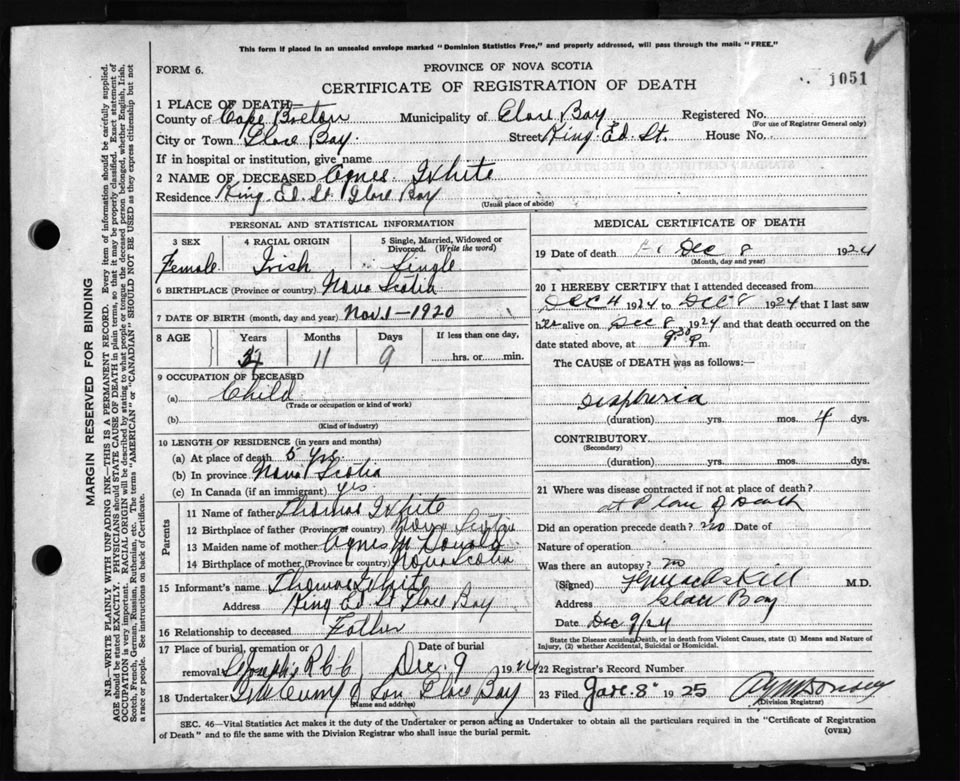 This form if placed in an unsealed envelope marked "Dominion Statistics Free," and properly addressed, will pass through the mails "FREE."
FORM 6.
PROVINCE OF NOVA SCOTIA
1051
CERTIFICATE OF REGISTRATION OF DEATH
1 PLACE OF DEATH—
County of Cape Breton Municipality of Glace Bay Registered No.
(For use of Registrar General only)
City or Town Glace Bay. Street King Ed. St. House No.
If in hospital or institution, give name
2 NAME OF DECEASED Agnes White
Residence King Ed. St. Glace Bay
(Usual place of abode)
PERSONAL AND STATISTICAL INFORMATION
3 SEX 4 RACIAL ORIGIN 5 Single, Married, Widowed or Divorced. (Write the word)
Female Irish Single
6 BIRTHPLACE (Province or country) Nova Scotia
7 DATE OF BIRTH (month, day and year) Nov. 1—1920
8 AGE Years Months Days If less than one day,
11 9 hrs. or min.
9 OCCUPATION OF DECEASED
(a) Child
(Trade or occupation or kind of work)
(b)
(Kind of industry)
10 LENGTH OF RESIDENCE (in years and months)
(a) At place of death 5 yrs.
(b) In province Nova Scotia
(c) In Canada (if an immigrant) yes.
Parents
11 Name of father Thomas White
12 Birthplace of father (Province or country) Nova Scotia
13 Maiden name of mother Agnes McDonald
14 Birthplace of mother (Province or country) Nova Scotia
15 Informant's name Thomas White
Address King Ed St Glace Bay
16 Relationship to deceased Father
17 Place of burial, cremation or removal Date of burial
St Josephs R.C.C. Dec. 9 1924
18 Undertaker & Son Glace Bay
(Name and address)
MEDICAL CERTIFICATE OF DEATH
19 Date of death Dec 8 1924
(Month, day and year)
20 I HEREBY CERTIFY that I attended deceased from
Dec 4 1924 to Dec 8 1924 that I last saw
her alive on Dec 8 1924 and that death occurred on the
date stated above, at 9.30 P. m.
The CAUSE of DEATH was as follows:—
Diphtheria
(duration) yrs. mos. 4 dys.
CONTRIBUTORY.
(Secondary)
(duration) yrs. mos. dys.
21 Where was disease contracted if not at place of death?
at Place of Death
Did an operation precede death? no Date of
Nature of operation
Was there an autopsy? no
(Signed) M.D.
Address Glace Bay
Date Dec 9/24
State the Disease causing Death, or in death from Violent Causes, state (1) Means and Nature of Injury, (2) whether Accidental, Suicidal or Homicidal.
22 Registrar's Record Number
23 Filed Jan. 8 1925
(Division Registrar)
SEC. 46—Vital Statistics Act makes it the duty of the Undertaker or person acting as Undertaker to obtain all the particulars required in the "Certificate of Registration
of Death" and to file the same with the Division Registrar who shall issue the burial permit.
(OVER)
MARGIN RESERVED FOR BINDING
N.B.—WRITE PLAINLY WITH UNFADING INK—THIS IS A PERMANENT RECORD. Every item of information should be carefully supplied.
AGE should be stated EXACTLY. PHYSICIANS should STATE CAUSE OF DEATH in plain terms, so that it may be properly classified. Exact statement of
OCCUPATION is very important. RACIAL ORIGIN will be described by stating to what people or tongue the deceased person belonged, whether English, Irish,
Scotch, French, German, Russian, Ruthenian, etc. The terms "AMERICAN" or "CANADIAN" SHOULD NOT BE USED as they express citizenship but not
a race or people. See instructions on back of Certificate.